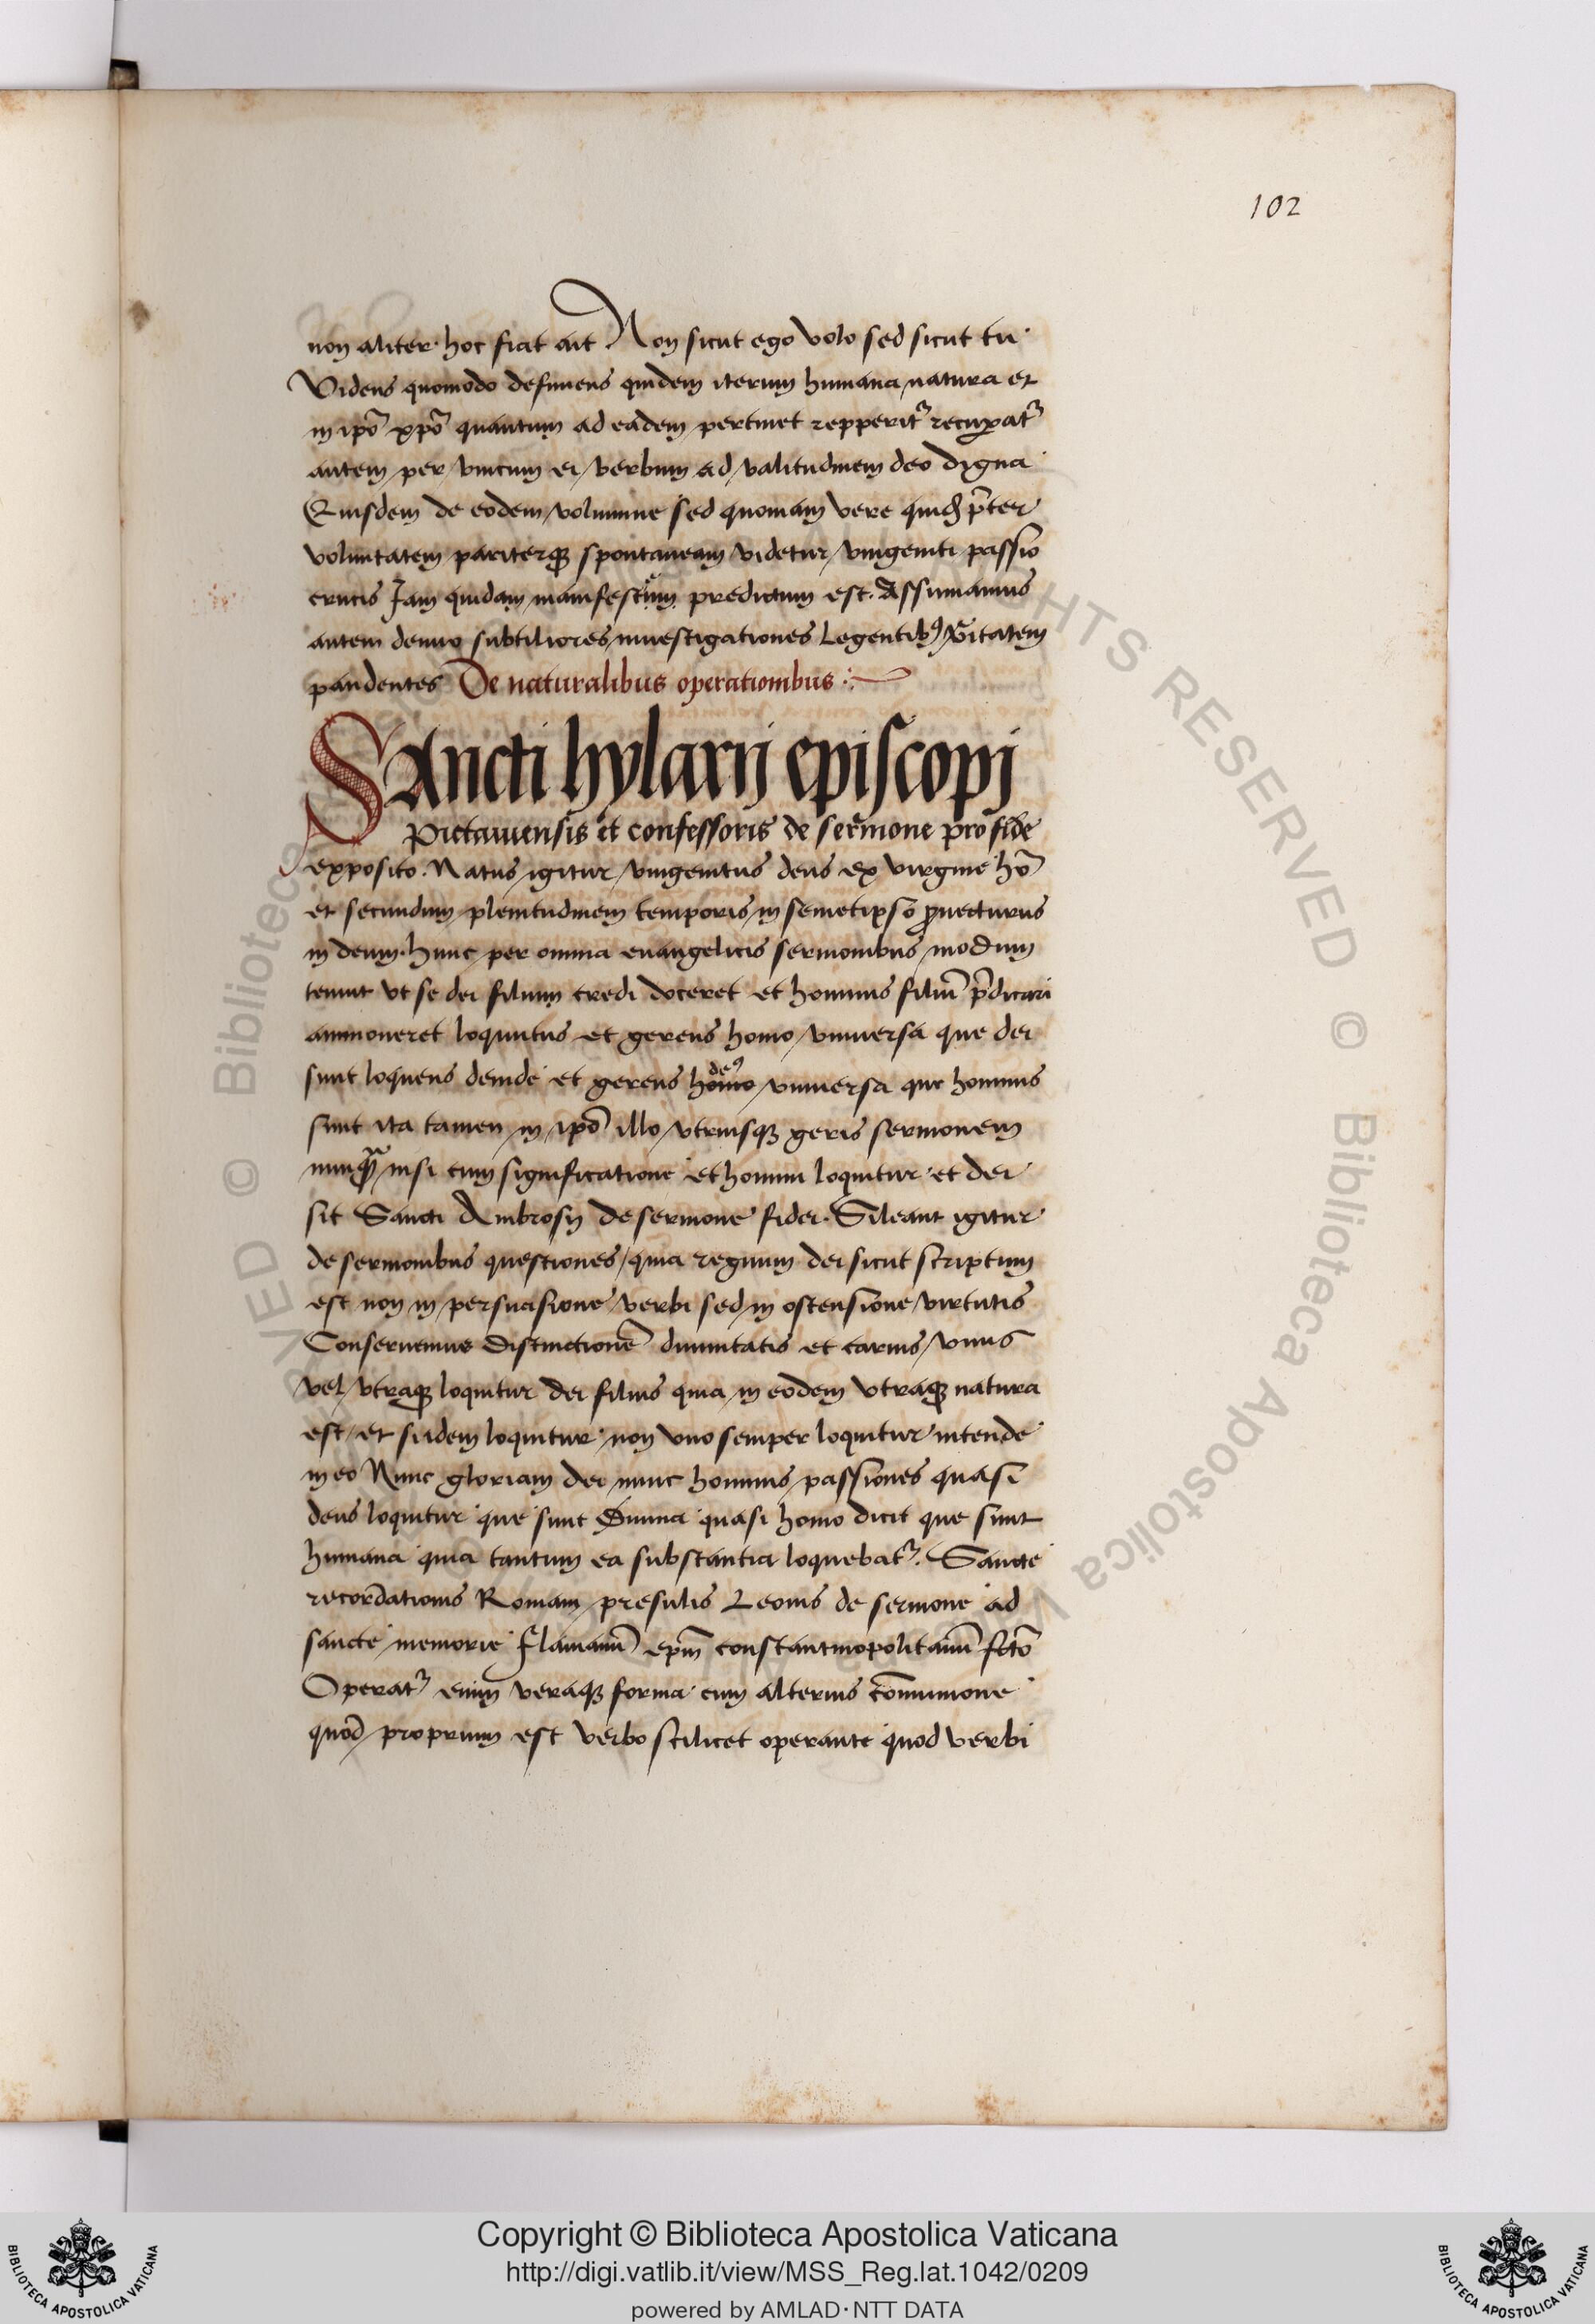 102
non aliter hoc fiat ait Non sicut ego volo sed sicut tu
Videns quomodo defunens quidem iterum humana natura et
in ip̄o xp̄o quantum ad eadem pertinet repperit᷑ recup̱at᷑
autem per unicum ei verbum ad valitudinem deo digna
Eiusdem de eodem volumine sed quoniam vere p̄ter
voluntatem pariterqꝫ spontaneam videtur unigeniti passio
crucis Iam quidam manifestum predictum est. Assumamus
autem denuo subtiliores investigationes Legentibꝰ v̄itatem
pandentes De naturalibus operationibus
SAncti hylarij episcopj
Pictauensis et confessoris de sermone pro fide
exposito. Natus igitur unigenitus deus ex virgine hō
et secundum plenitudinem temporis in semetipso ꝓuecturus
in deum. hunc per omnia euangelicis sermonibus modum
tenuit vt se dei filium credi doceret et hominis filiū p̄dicari
ammoneret loquutus et gerens homo vniuersa que dei
sunt loquens deinde et gerens homo deꝰ vniuersa que hominis
sunt ita tamen in ip̄o illo vtriusqꝫ geris sermonem
nunqͣ nisi cum significatione et homini loquitur et dei
sit Sancti Ambrosij de sermone fidei. Sileant igitur
de sermonibus questiones quia regnum dei sicut scriptum
est non in persuasione verbi sed in ostensione virtutis
Conseruemus distinctionē diuinitatis et carnis vnus
vel vtraqꝫ loquitur dei filius quia in eodem vtraqꝫ natura
est et si idem loquitur non vno semper loquitur intende
in eo Nunc gloriam dei nunc hominis passiones quasi
deus loquitur que sunt Diuina quasi homo dicit que sunt
humana quia tantum ea substantia loquebat᷑. Sancte
recordationis Romam presulis Leonis de sermone ad
sancte memorie Flauianū ep̄m constantinopolitanū fc̄to
Operat᷑ enim veraqꝫ forma cum alterius cōmunione
quod proprium est verbo scilicet operante quod verbi
Copyright © Biblioteca Apostolica Vaticana
http://digi.vatlib.it/view/MSS_Reg.lat.1042/0209
powered by AMLAD·NTT DATA
BIBLIOTECA APOSTOLICA VATICANA
BIBLIOTECA APOSTOLICA VATICANA